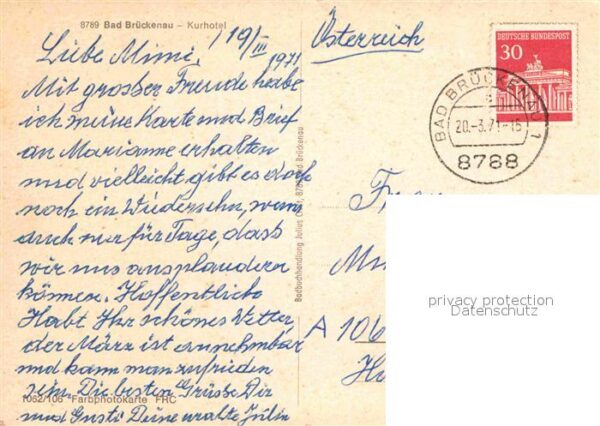 8789 Bad Brückenau – Kurhotel
19/III 1971
Liebe Mimi,
Mit grosser Freude habe
ich meine Karte und Brief
an Marianne erhalten
und vielleicht gibt es doch
noch ein Wiedersehn, wenn
auch nur für Tage, dass
wir uns ausplaudern
können. Hoffentlich
Habt Ihr schönes Wetter,
der März ist annehmbar
und kann man zufrieden
sein. Die besten Grüsse Dir
und Gusti Deine uralte
1062/106 Farbphotokarte FRC
Badbuchhandlung Julius 8789 Bad Brückenau
Österreich
DEUTSCHE BUNDESPOST
30
BAD BRÜCKENAU 1
a
20.-3.71-15
8788
A 106
privacy protection
Datenschutz